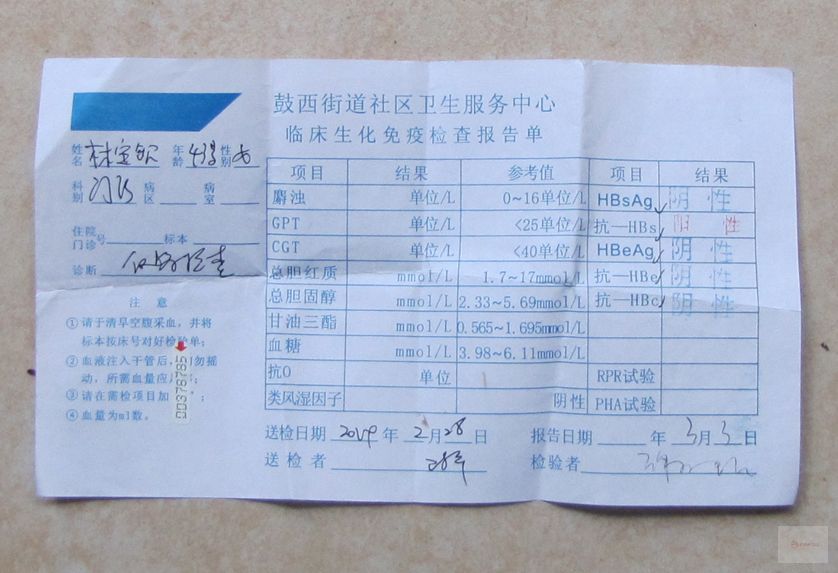 鼓西街道社区卫生服务中心
临床生化免疫检查报告单
姓名 林宝钦 年龄 性别 女
科别 门诊 病区 病室
住院门诊号 标本
诊断
注意
①请于清早空腹采血，并将
标本按床号对好检验单；
②血液注入干管后，切勿摇
动，所需血量应
③请在需检项目加
④血量为ml数。
00378785
项目 结果 参考值 项目 结果
麝浊 单位/L 0~16单位/L HBsAg 阴性
GPT 单位/L <25单位/L 抗—HBs 阳性
CGT 单位/L <40单位/L HBeAg 阴性
总胆红质 mmol/L 1.7~17mmol/L 抗—HBe 阴性
总胆固醇 mmol/L 2.33~5.69mmol/L 抗—HBc 阴性
甘油三酯 mmol/L 0.565~1.695mmol/L
血糖 mmol/L 3.98~6.11mmol/L
抗O 单位 RPR试验
类风湿因子 阴性 PHA试验
送检日期 年 2月28日 报告日期 年 3月3日
送检者 检验者